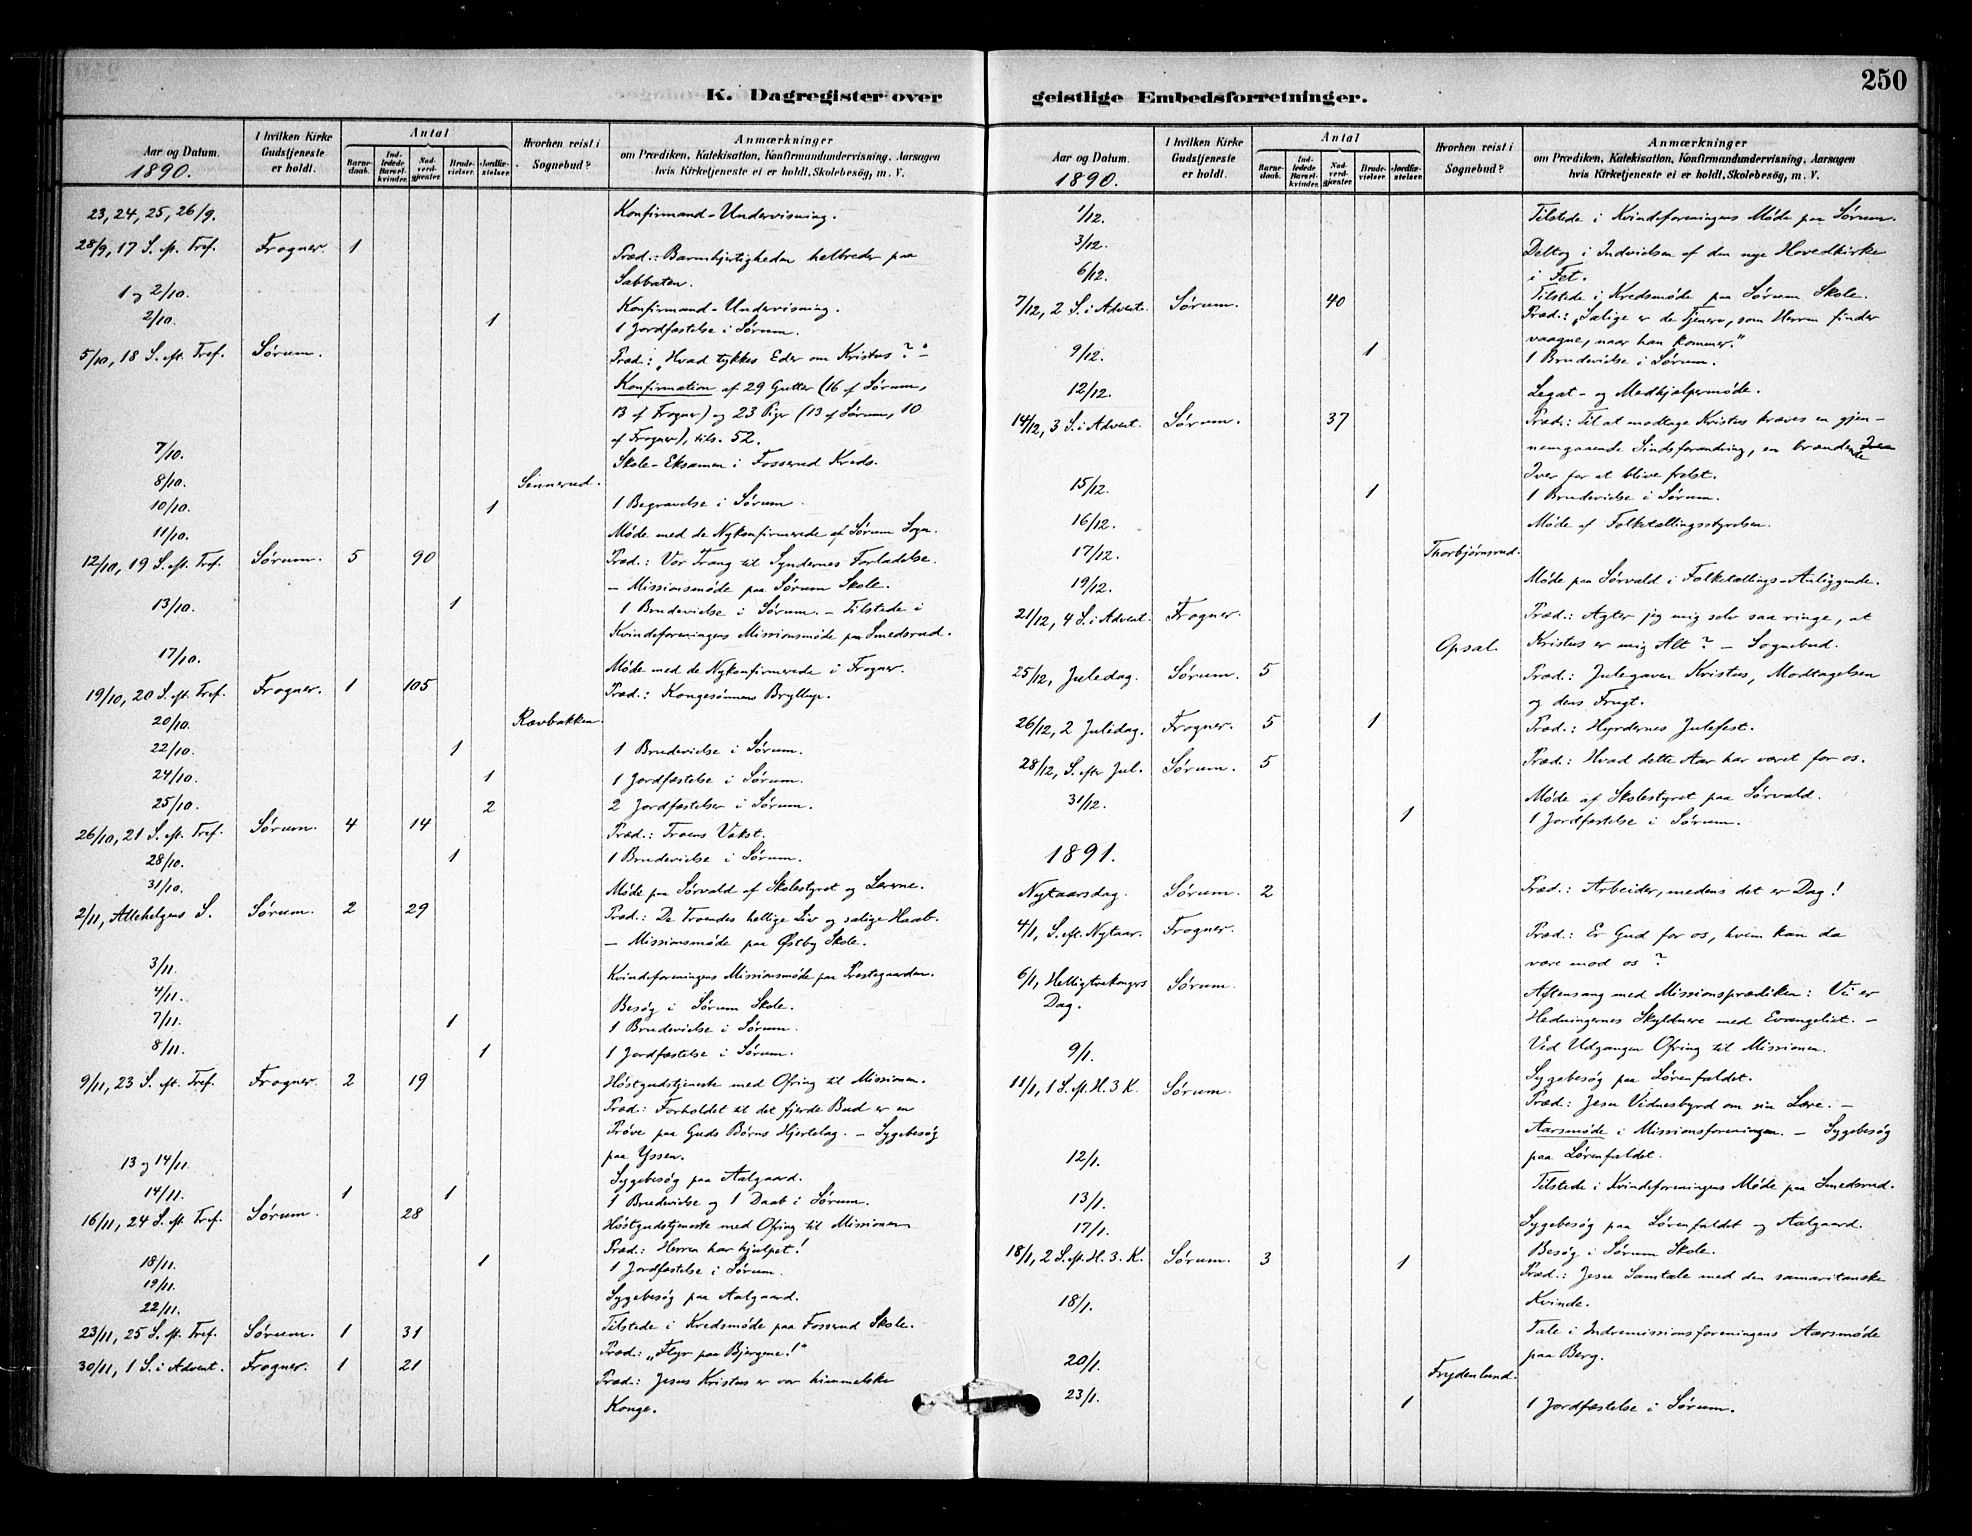 250
K. Dagregister over
Aar og Datum.
1890.
I hvilken Kirke Gudstjeneste er holdt.
Antal
Barnedaab.
Indledede Barselkvinder.
Nadverdgjæster.
Brudevielser.
Jordfæstelser.
Hvorhen reist i Sognebud?
Anmærkninger
om Prædiken, Katekisation, Konfirmandundervisning, Aarsagen
hvis Kirketjeneste ei er holdt, Skolebesøg, m. V.
23, 24, 25, 26/9. Konfirmand-Undervisning.
28/9, 17 S. eft. Tref. Frogner. 1 Præd.: Barmhjertigheden helbreder paa
Sabbaten.
1 og 2/10. Konfirmand-Undervisning.
2/10. 1 1 Jordfæstelse i Sørum.
5/10, 18 S. eft. Tref. Sørum. Præd.: „Hvad tykkes Eder om Kristus?" –
Konfirmation af 29 Gutter (16 af Sørum,
13 af Frogner) og 23 Piger (13 af Sørum, 10
af Frogner), tils. 52.
7/10. Skole-Eksamen i Fosserud Kreds.
8/10. Sennerud.
10/10. 1 1 Begravelse i Sørum.
11/10. Møde med de Nykonfirmerede af Sørum Sogn.
12/10, 19 S. eft. Tref. Sørum. 5 90 Præd.: Vor Trang til Syndernes Forladelse.
– Missionsmøde paa Sørum Skole.
13/10. 1 1 Brudevielse i Sørum. – Tilstede i
Kvindeforeningens Missionsmøde paa Smedsrud.
17/10. Møde med de Nykonfirmerede i Frogner.
19/10, 20 S. eft. Tref. Frogner. 1 105 Præd.: Kongesønnens Bryllup.
20/10. Rævbakken.
22/10. 1 1 Brudevielse i Sørum.
24/10. 1 1 Jordfæstelse i Sørum.
25/10. 2 2 Jordfæstelser i Sørum.
26/10, 21 S. eft. Tref. Sørum. 4 14 Præd.: Troens Vækst.
28/10. 1 1 Brudevielse i Sørum.
31/10. Møde paa Sørvald af Skolestyret og Lærerne.
2/11, Allehelgens S. Sørum. 2 29 Præd.: De Troendes hellige Liv og salige Haab.
– Missionsmøde paa Østby Skole.
3/11. Kvindeforeningens Missionsmøde paa Prestegaarden.
4/11. Besøg i Sørum Skole.
7/11. 1 1 Brudevielse i Sørum.
8/11. 1 1 Jordfæstelse i Sørum.
9/11, 23 S. eft. Tref. Frogner. 2 19 Høstgudstjeneste med Ofring til Missionen.
Præd.: Forholdet til det fjerde Bud er en
Prøve paa Guds Børns Hjertelag. – Sygebesøg
paa Yssen.
13 og 14/11. Sygebesøg paa Aalgaard.
14/11. 1 1 1 Brudevielse og 1 Daab i Sørum.
16/11, 24 S. eft. Tref. Sørum. 28 Høstgudstjeneste med Ofring til Missionen
Præd.: Herren har hjulpet!
18/11. 1 1 Jordfæstelse i Sørum.
19/11. Sygebesøg paa Aalgaard.
22/11. Tilstede i Kredsmøde paa Fosserud Skole.
23/11, 25 S. eft. Tref. Sørum. 1 31 Præd.: „Flyr paa Bjergene!"
30/11, 1 S. i Advent. Frogner. 1 21 Præd.: Jesus Kristus er vor himmelske
Konge.
geistlige Embedsforretninger.
Aar og Datum.
1890.
I hvilken Kirke Gudstjeneste er holdt.
Antal
Barnedaab.
Indledede Barselkvinder.
Nadverdgjæster.
Brudevielser.
Jordfæstelser.
Hvorhen reist i Sognebud?
Anmærkninger
om Prædiken, Katekisation, Konfirmandundervisning, Aarsagen
hvis Kirketjeneste ei er holdt, Skolebesøg, m. V.
1/12. Tilstede i Kvindeforeningens Møde paa Sørum.
3/12. Deltog i Indvielsen af den nye Hovedkirke
i Fet.
6/12. Tilstede i Kredsmøde paa Sørum Skole.
7/12, 2 S. i Advent. Sørum. 40 Præd.: „Salige er de Tjenere, som Herren finder
vaagne, naar han kommer."
9/12. 1 1 Brudevielse i Sørum.
12/12. Legat- og Medhjælpermøde.
14/12, 3 S. i Advent. Sørum. 37 Præd.: Til at modtage Kristus kræves en gjen-
nemgaaende Sindsforandring, en brændende
Iver for at blive frelst.
15/12. 1 1 Brudevielse i Sørum.
16/12. Møde af Folketællingsstyrelsen.
17/12. Thorbjørnsrud.
19/12. Møde paa Sørvald i Folketællings-Anliggende.
21/12, 4 S. i Advent. Frogner. Præd.: Agter jeg mig selv saa ringe, at
Opsal. Kristus er mig Alt? – Sognebud.
25/12, Juledag. Sørum. 5 Præd.: Julegaven Kristus, Modtagelsen
og dens Frugt.
26/12, 2 Juledag. Frogner. 5 1 Præd.: Hyrdernes Julefest.
28/12, S. efter Jul. Sørum. 5 Præd.: Hvad dette Aar har været for os.
31/12. Møde af Skolestyret paa Sørvald.
1 1 Jordfæstelse i Sørum.
1891.
Nytaarsdag. Sørum. 2 Præd.: Arbeider, medens det er Dag!
4/1, S. eft. Nytaar. Frogner. Præd.: Er Gud for os, hvem kan da
være mod os?
6/1, Helligtrekongers Dag. Sørum. Aftensang med Missionsprædiken: Vi er
Hedningernes Skyldnere med Evangeliet. –
Ved Udgangen Ofring til Missionen.
9/1. Sygebesøg paa Lørenfaldet.
11/1, 1 S. eft. H. 3 K. Sørum. Præd.: Jesu Vidnesbyrd om sin Lære. –
Aarsmøde i Missionsforeningen. – Sygebesøg
paa Lørenfaldet.
12/1. Tilstede i Kvindeforeningens Møde paa Smedsrud.
13/1. Sygebesøg paa Lørenfaldet og Aalgaard.
17/1. Besøg i Sørum Skole.
18/1, 2 S. eft. H. 3. K. Sørum. 3 1 Præd.: Jesu Samtale med den samaritanske
Kvinde.
18/1. Tale i Indremissionsforeningens Aarsmøde
paa Berg.
20/1. Frydenlund.
23/1. 1 1 Jordfæstelse i Sørum.